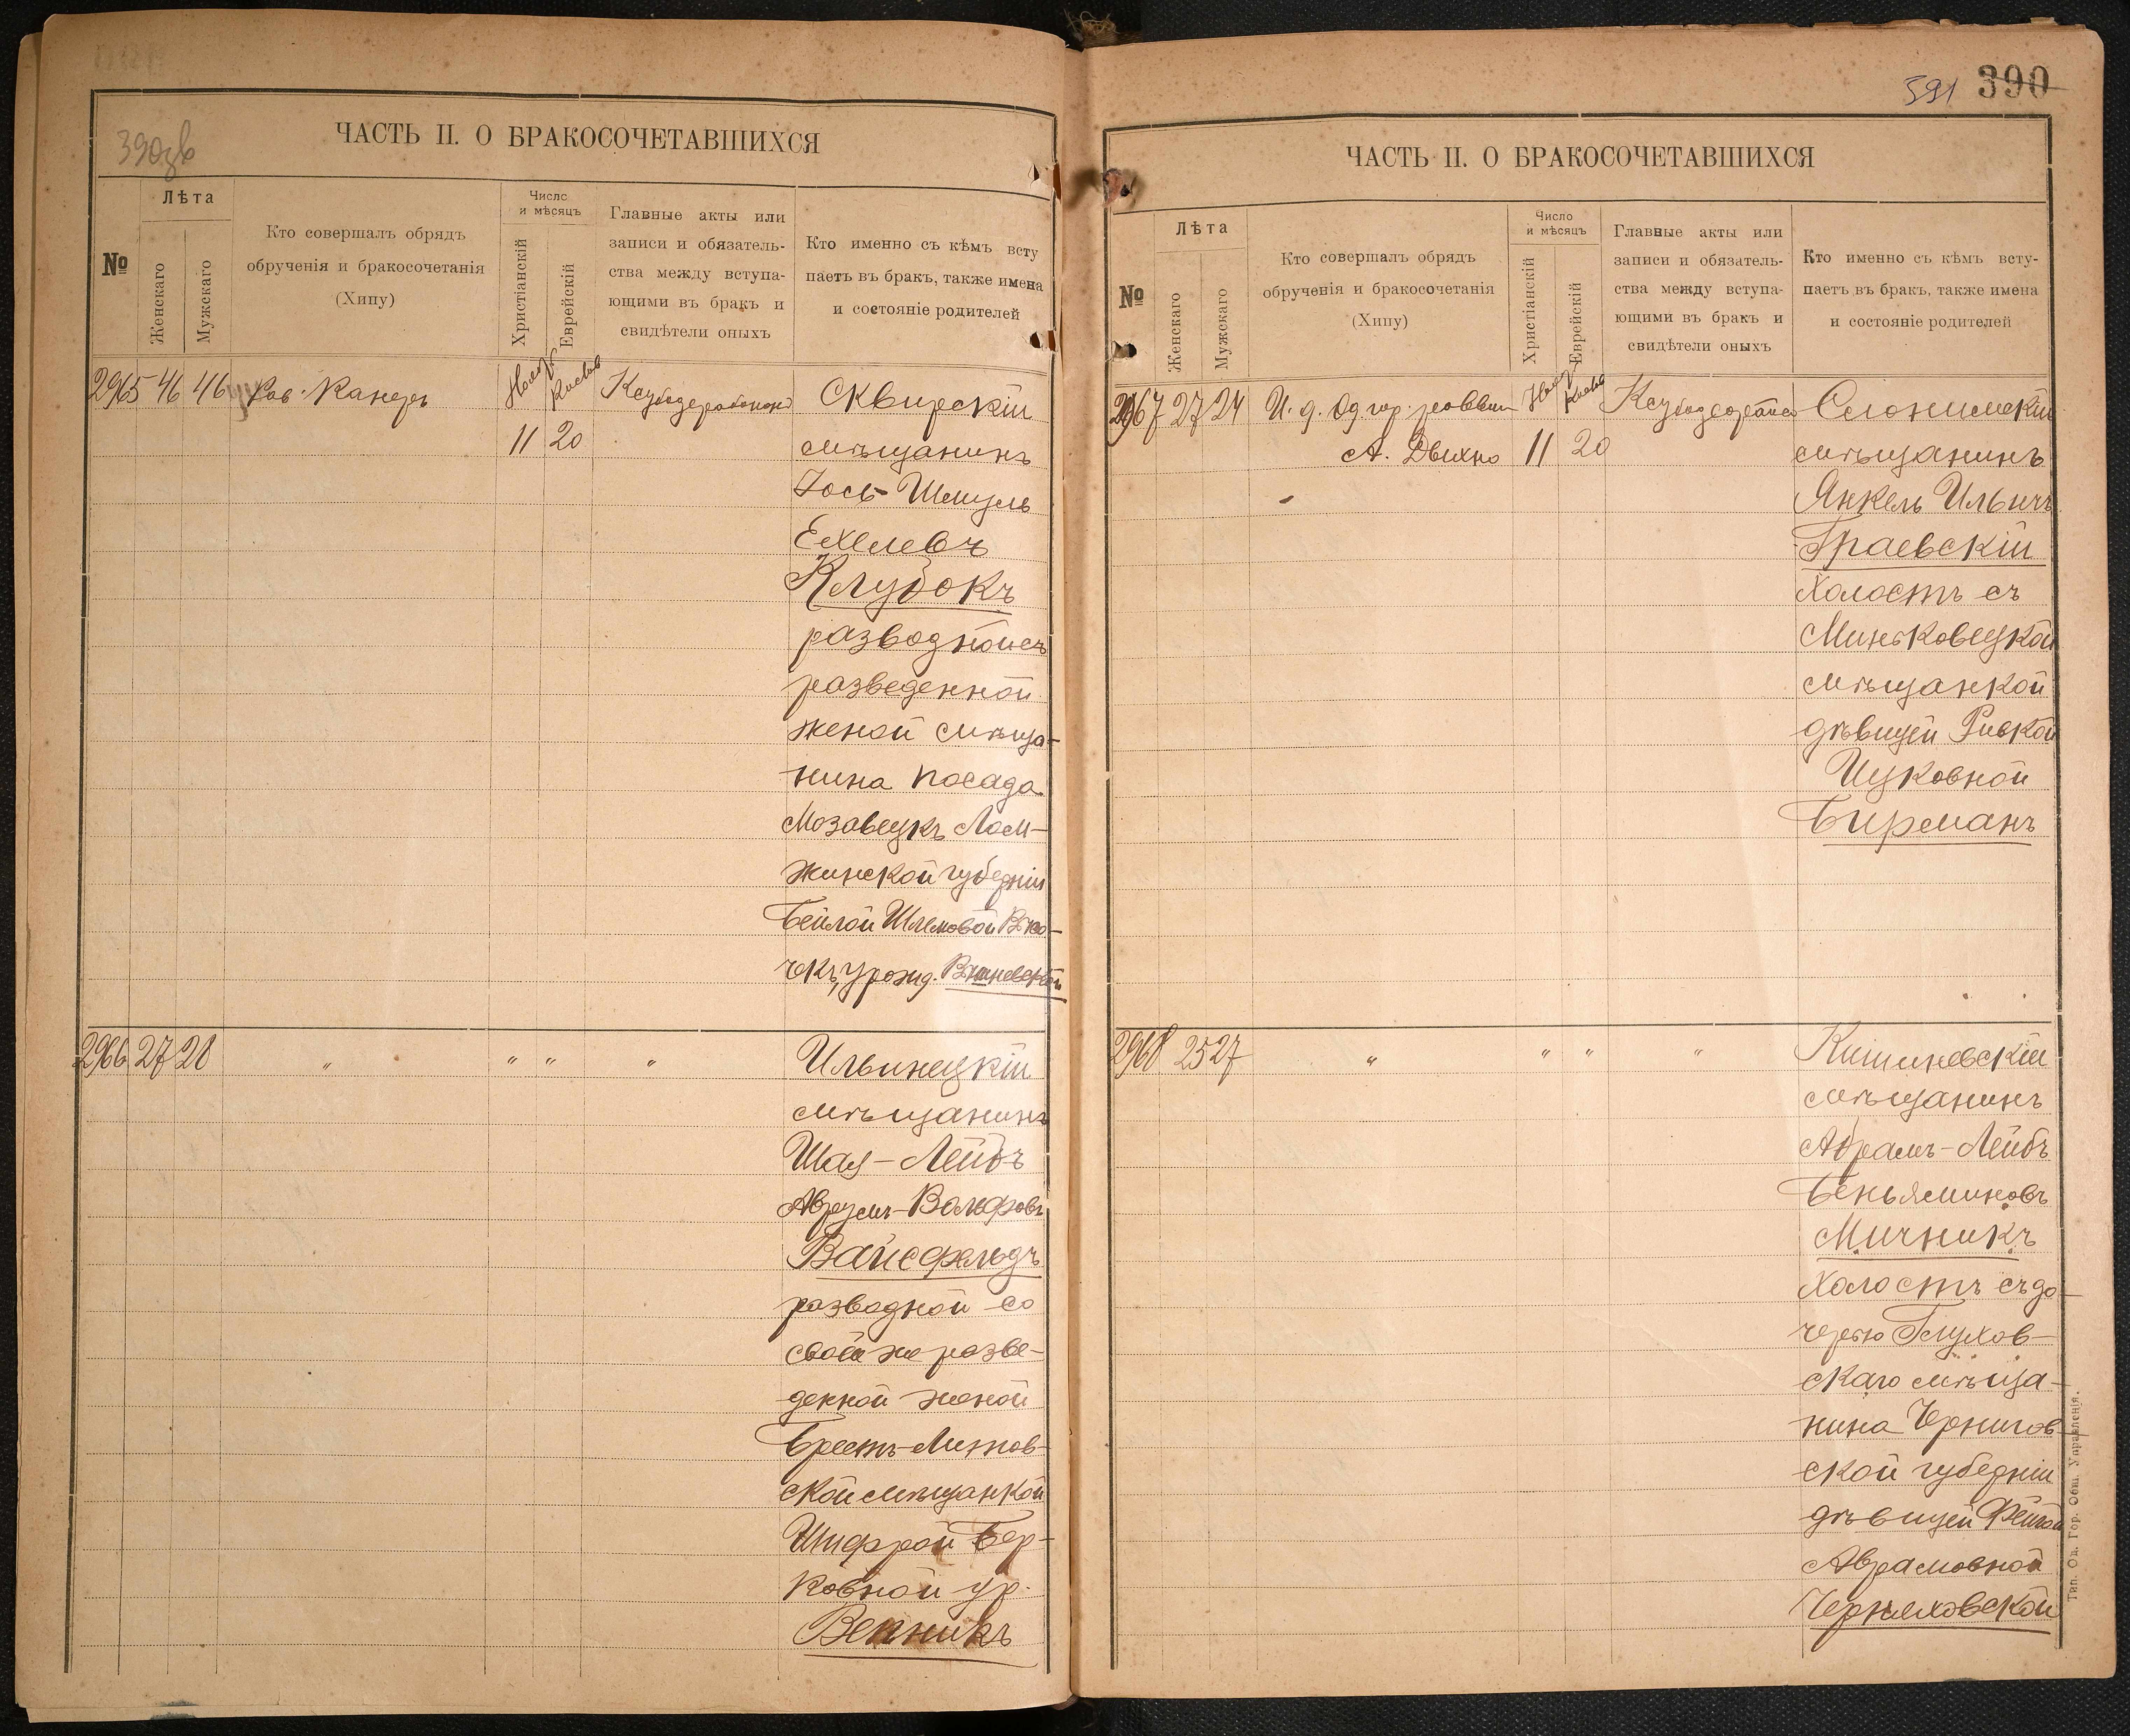 390зв
ЧАСТЬ II. О БРАКОСОЧЕТАВШИХСЯ
№
Лѣта
Женскаго
Мужскаго
Кто совершалъ обрядъ
обрученія и бракосочетанія
(Хипу)
Число
и мѣсяцъ
Христіанскій
Еврейскій
Главные акты или
записи и обязатель-
ства между вступа-
ющими въ бракъ и
свидѣтели оныхъ
Кто именно съ кѣмъ всту
паетъ въ бракъ, также имена
и состояніе родителей
2965 46 46 Рав. Канеръ Нояб. Кислев Скверскій
11 20 мѣщанинъ
Іось-Шмуль
Ехелевъ
Клубокъ
разводной съ
разведенной
женой мѣща-
нина посада
Мозавецкъ Лом-
жинской губерніи
Бейлой Шлемовой
урожд.
2966 27 28 " " " " Ильинецкій
мѣщанинъ
Шая-Лейбъ
Аврумъ-Вольфовъ
Вайсфельдъ
разводной со
своей же разве-
денной женой
Брестъ-Литов-
ской мѣщанкой
Шифрой Бер-
ковной ур.
Венникъ
391 390
ЧАСТЬ II. О БРАКОСОЧЕТАВШИХСЯ
№
Лѣта
Женскаго
Мужскаго
Кто совершалъ обрядъ
обрученія и бракосочетанія
(Хипу)
Число
и мѣсяцъ
Христіанскій
Еврейскій
Главные акты или
записи и обязатель-
ства между вступа-
ющими въ бракъ и
свидѣтели оныхъ
Кто именно съ кѣмъ всту-
паетъ въ бракъ, также имена
и состояніе родителей
2967 27 24 И. д. Од. гор. раввин Нояб. Кислев Слонимскій
А. Дыхно 11 20 мѣщанинъ
Янкель Ильичъ
Граевскій
холостъ съ
Миньковецкой
мѣщанкой
дѣвицей Ривкой
Ицковной
Бирманъ
2968 25 27 " " " " Кишиневскій
мѣщанинъ
Абрамъ-Лейбъ
Беньяминовъ
Мичникъ
холостъ съ до-
черью Глухов-
скаго мѣща-
нина Чернигов-
ской губерніи
дѣвицей Фейгой
Аврамовной
Черняховской
Тип. Од. Гор. Общ. Управленія.